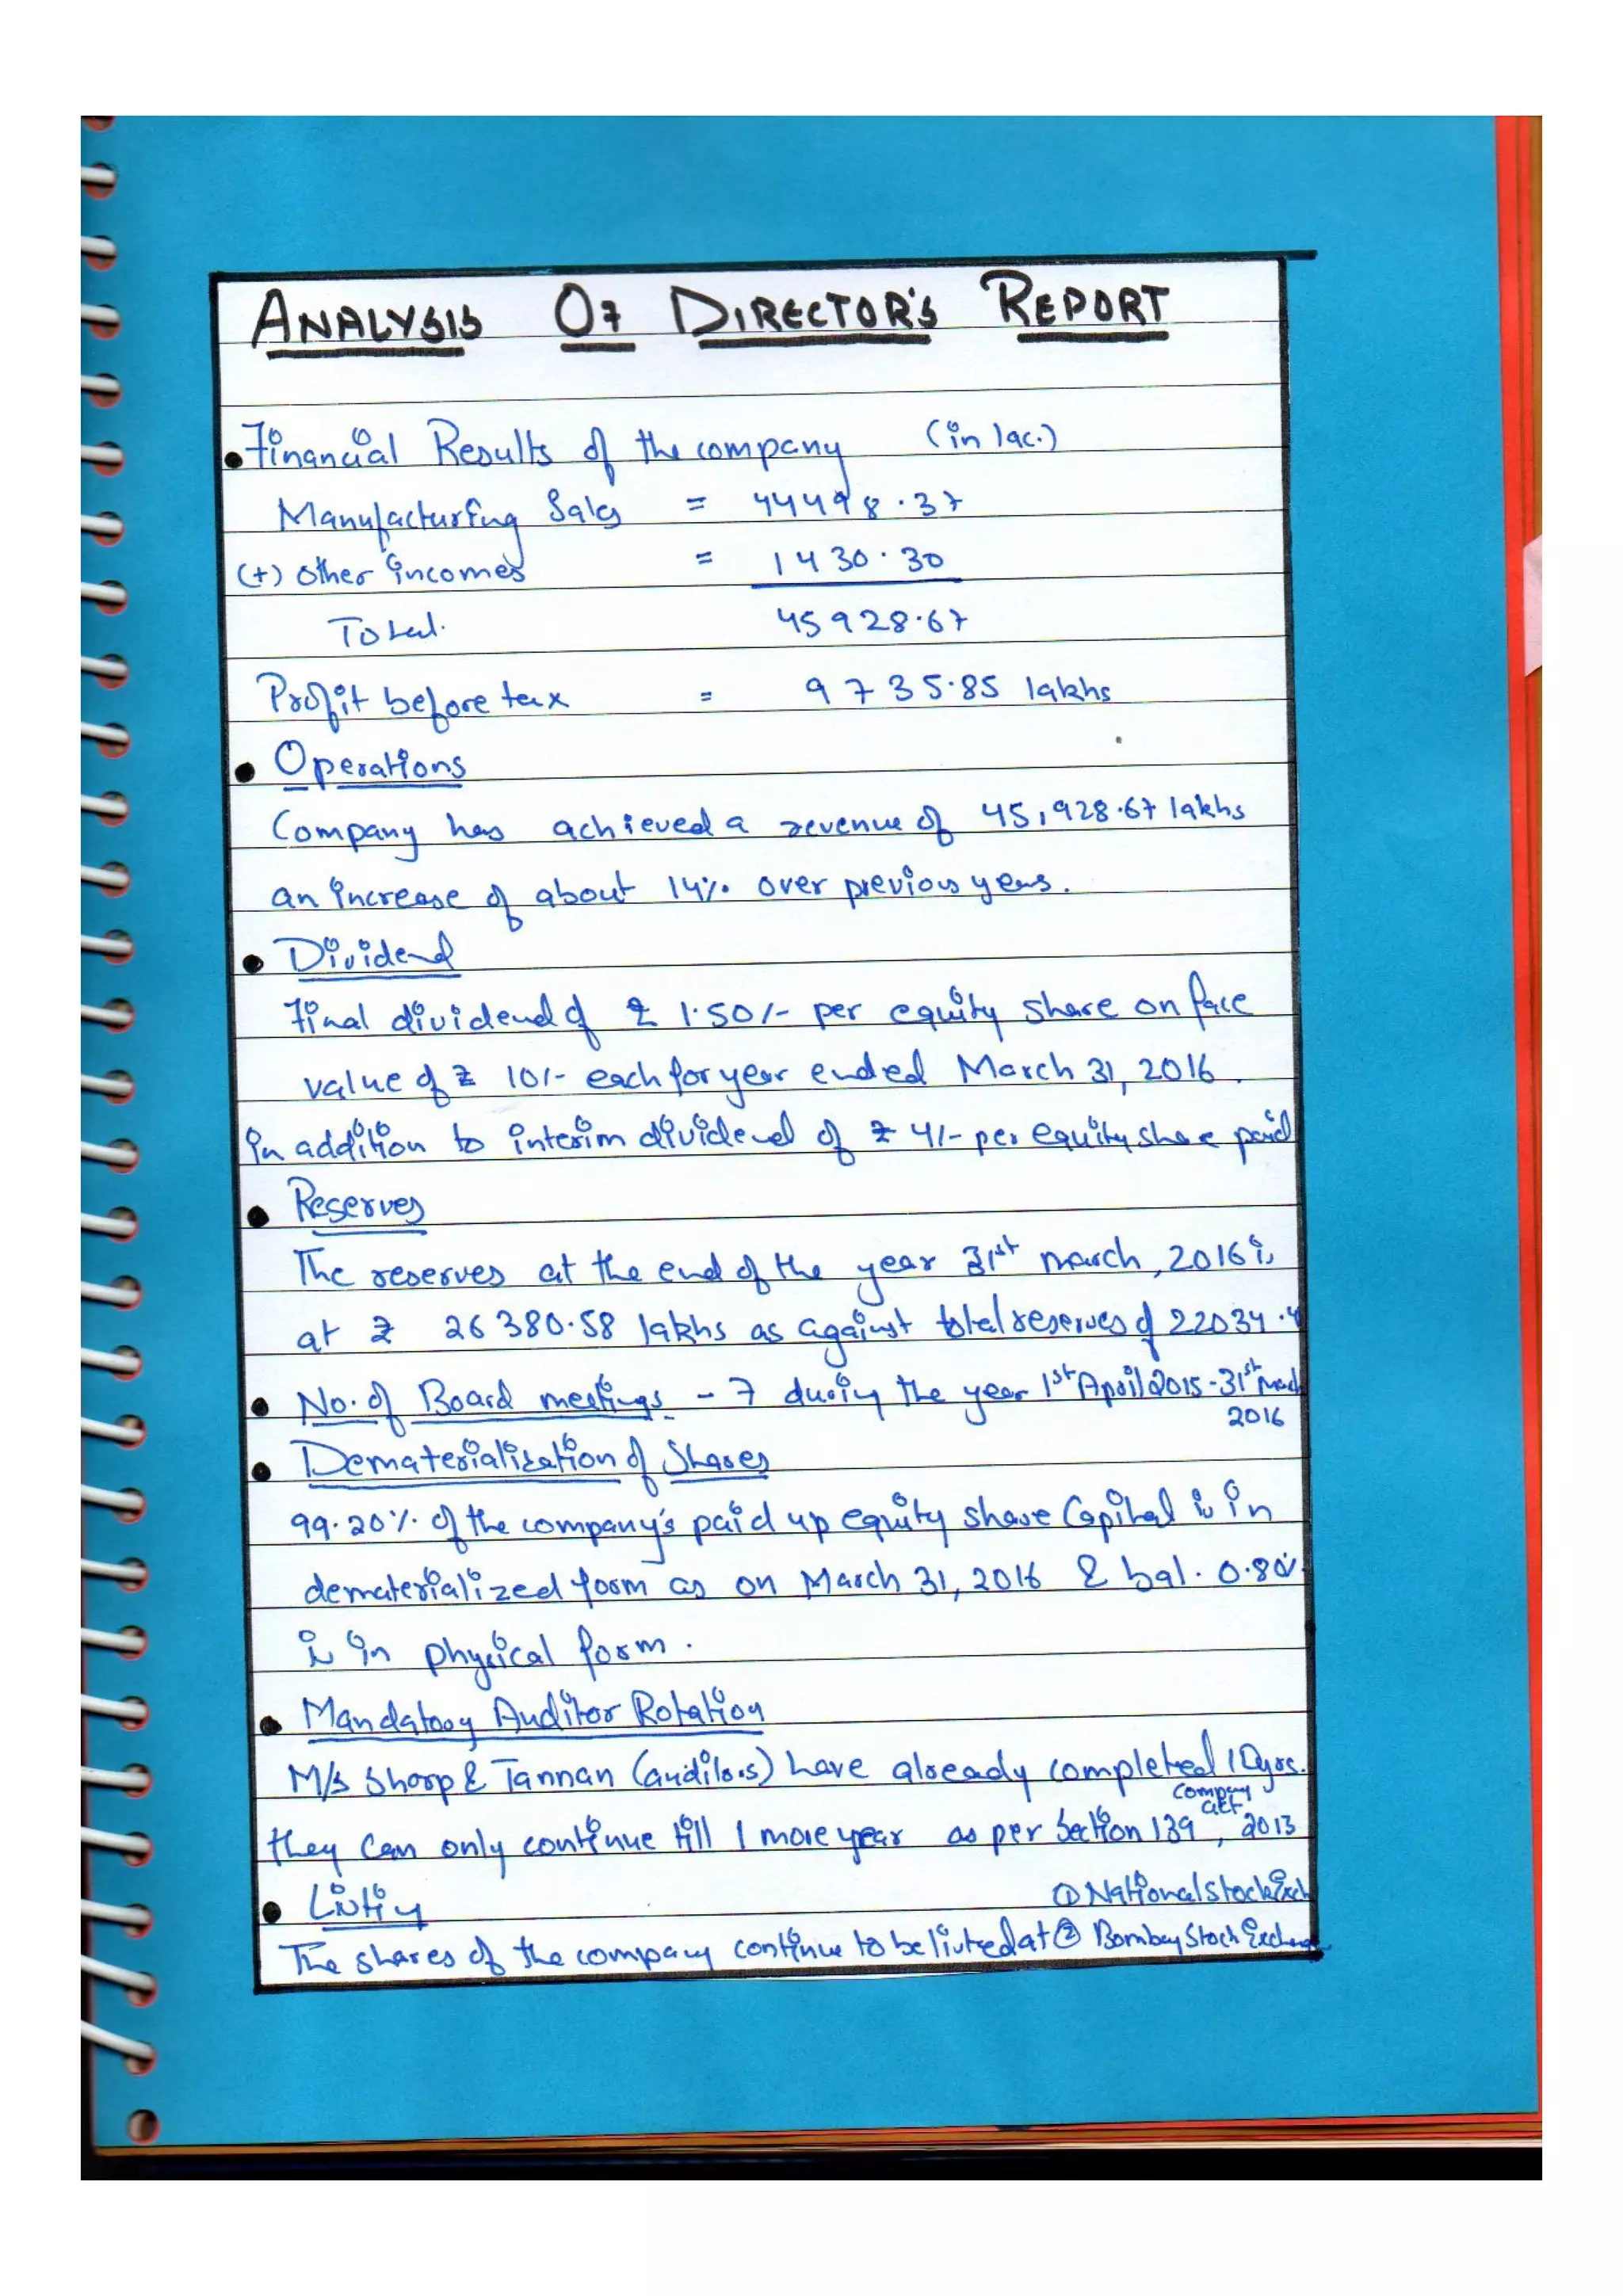 ANALYSIS OF DIRECTOR'S REPORT
Financial Results of the company (in lac.)
Manufacturing Sales = 44498.37
(+) Other incomes = 1430.30
Total. 45928.67
Profit before tax = 9735.85 lakhs
Operations
Company has achieved a revenue of 45,928.67 lakhs
an increase of about 14% over previous years.
Dividend
Final dividend of ₹ 1.50/- per equity share on face
value of ₹ 10/- each for year ended March 31, 2016.
in addition to interim dividend of ₹ 4/- per equity share paid
Reserves
The reserves at the end of the year 31st march, 2016 is
at ₹ 26380.58 lakhs as against total reserves of 22034.4
No. of Board meetings - 7 during the year 1st April 2015 - 31st March
2016
Dematerialization of Shares
99.20% of the company's paid up equity share Capital is in
dematerialized form as on March 31, 2016 & bal. 0.80%
is in physical form.
Mandatory Auditor Rotation
M/s Sharp & Tannan (auditors) have already completed 10yrs.
company
act
they can only continue till 1 more year as per Section 139, 2013
Listing
① National Stock Exch
The shares of the company continue to be listed at ② Bombay Stock Exchange